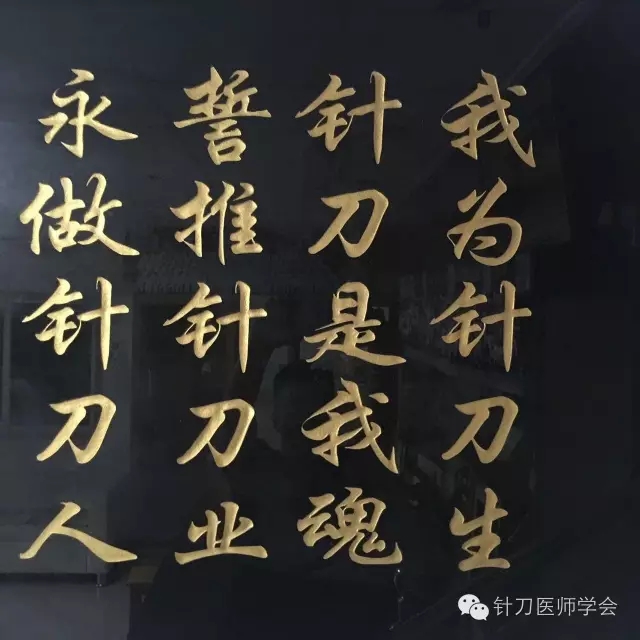 我为针刀生
针刀是我魂
誓推针刀业
永做针刀人
针刀医师学会